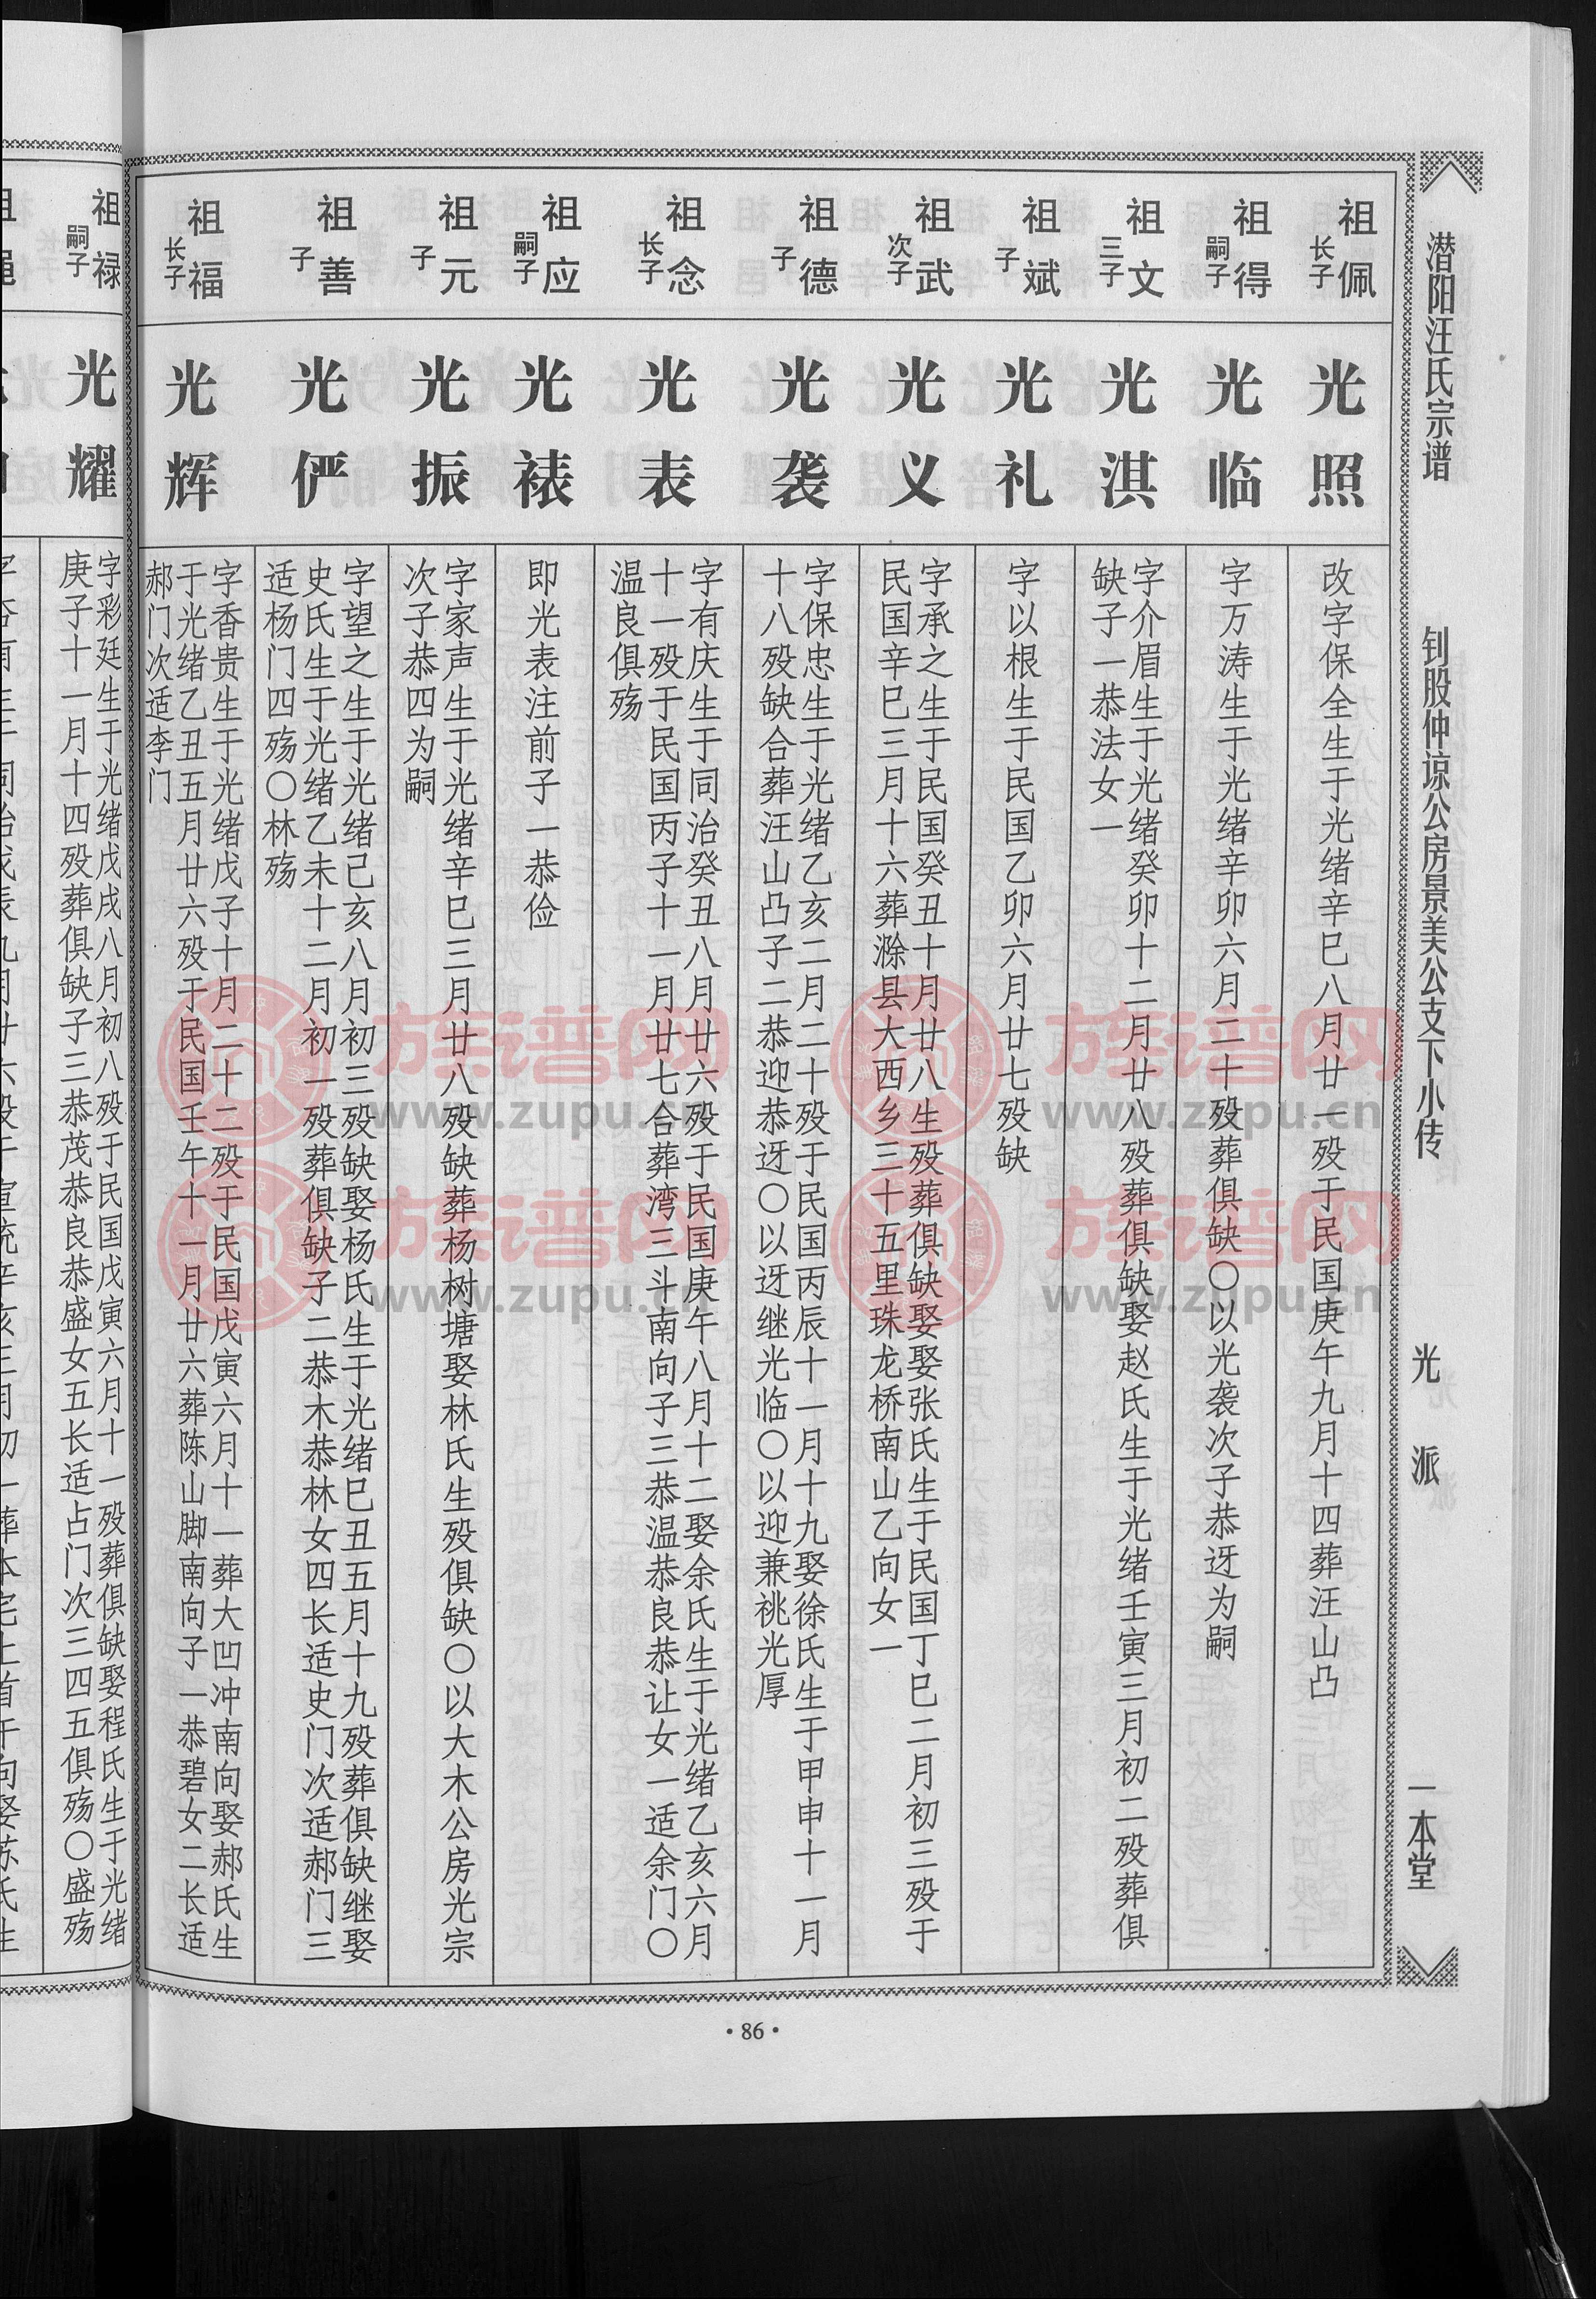 潜阳汪氏宗谱
钊股仲谅公房景美公支下小传
光派
一本堂
祖佩
长子
光照
改字保全生于光绪辛巳八月廿一殁于民国庚午九月十四葬汪山凸
祖得
嗣子
光临
字万涛生于光绪辛卯六月二十殁葬俱缺〇以光袭次子恭迓为嗣
祖文
三子
光淇
字介眉生于光绪癸卯十二月廿八殁葬俱缺娶赵氏生于光绪壬寅三月初二殁葬俱
缺子一恭法女一
祖斌
子
光礼
字以根生于民国乙卯六月廿七殁缺
祖武
次子
光义
字承之生于民国癸丑十月廿八生殁葬俱缺娶娶张氏生于民国丁巳二月初三殁于
民国辛巳三月十六葬滁县大西乡三十五里珠龙桥南山乙向女一
祖德
子
光袭
字保忠生于光绪乙亥二月二十殁于民国丙辰十一月十九娶徐氏生于甲申十一月
十八殁缺合葬汪山凸子二恭迎恭迓〇以迓继光临〇以迎兼祧光厚
祖念
长子
光表
字有庆生于同治癸丑八月廿六殁于民国庚午八月十二娶余氏生于光绪乙亥六月
十一殁于民国丙子十一月廿七合葬湾三斗南向子三恭温恭良恭让女一适余门〇
温良俱殇
祖应
嗣子
光裱
即光表注前子一恭俭
祖元
子
光振
字家声生于光绪辛巳三月廿八殁缺葬杨树塘娶林氏生殁俱缺〇以大木公房光宗
次子恭四为嗣
祖善
子
光俨
字望之生于光绪己亥八月初三殁缺娶杨氏生于光绪巳丑五月十九殁葬俱缺继娶
史氏生于光绪乙未十二月初一殁葬俱缺子二恭木恭林女四长适史门次适郝门三
适杨门四殇〇林殇
祖福
长子
光辉
字香贵生于光绪戊子十月二十二殁于民国戊寅六月十一葬大凹冲南向娶郝氏生
于光绪乙丑五月廿六殁于民国壬午十一月廿六葬陈山脚南向子一恭碧女二长适
郝门次适李门
祖禄
嗣子
光耀
字彩廷生于光绪戊戌八月初八殁于民国戊寅六月十一殁葬俱缺娶程氏生于光绪
庚子十一月十四殁葬俱缺子三恭茂恭良恭盛女五长适占门次三四五俱殇〇盛殇
·86·
族谱网
www.zupu.cn
族谱网
www.zupu.cn
族谱网
www.zupu.cn
族谱网
www.zupu.cn